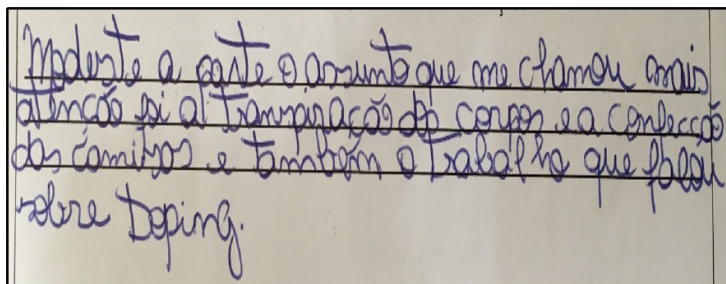 Modeste a parte o assunto que me chamou mais
atenção foi a transpiração do corpos e a confecção
das camisas e também o trabalho que falou
sobre Doping.